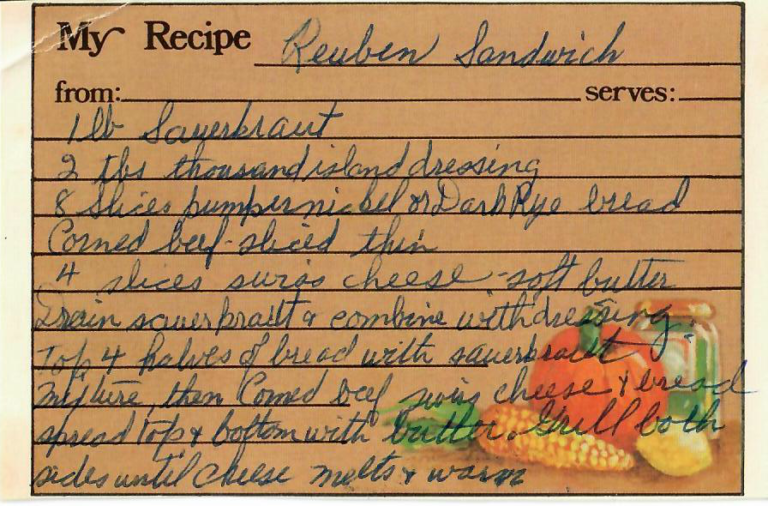 My Recipe Reuben Sandwich
from: serves:
1 lb Sauerkraut
2 tbs thousand island dressing
8 slices pumpernickel or Dark Rye bread
Corned beef - sliced thin
4 slices swiss cheese - soft butter
Drain sauerkraut & combine with dressing.
Top 4 halves of bread with sauerkraut
mixture, then Corned beef swiss cheese & bread
spread top & bottom with butter. Grill both
sides until cheese melts & warm